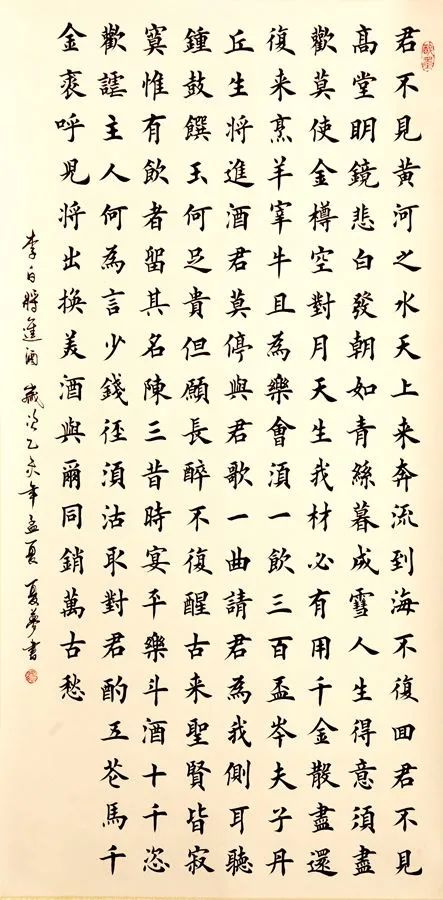 君不見黃河之水天上来奔流到海不復回君不見
高堂明鏡悲白發朝如青絲暮成雪人生得意須盡
歡莫使金樽空對月天生我材必有用千金散盡還
復来烹羊宰牛且為樂會須一飲三百盃岑夫子丹
丘生將進酒君莫停與君歌一曲請君為我側耳聽
鍾鼓饌玉何足貴但願長醉不復醒古来聖賢皆寂
寞惟有飲者留其名陳三昔時宴平樂斗酒十千恣
歡謔主人何為言少錢徑須沽取對君酌五花馬千
金裘呼兒將出換美酒與爾同銷萬古愁
李白將進酒 歲次乙亥年孟夏 夏夢書